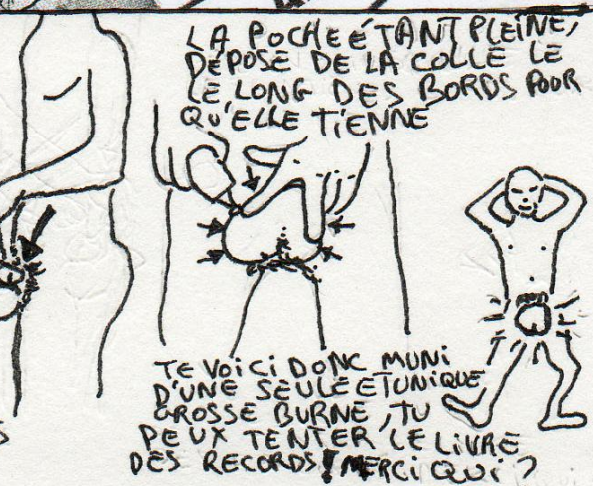 LA POCHE ÉTANT PLEINE,
DÉPOSE DE LA COLLE LE
LE LONG DES BORDS POUR
QU'ELLE TIENNE
TE VOICI DONC MUNI
D'UNE SEULE ET UNIQUE
GROSSE BURNE, TU
PEUX TENTER LE LIVRE
DES RECORDS! MERCI QUI?